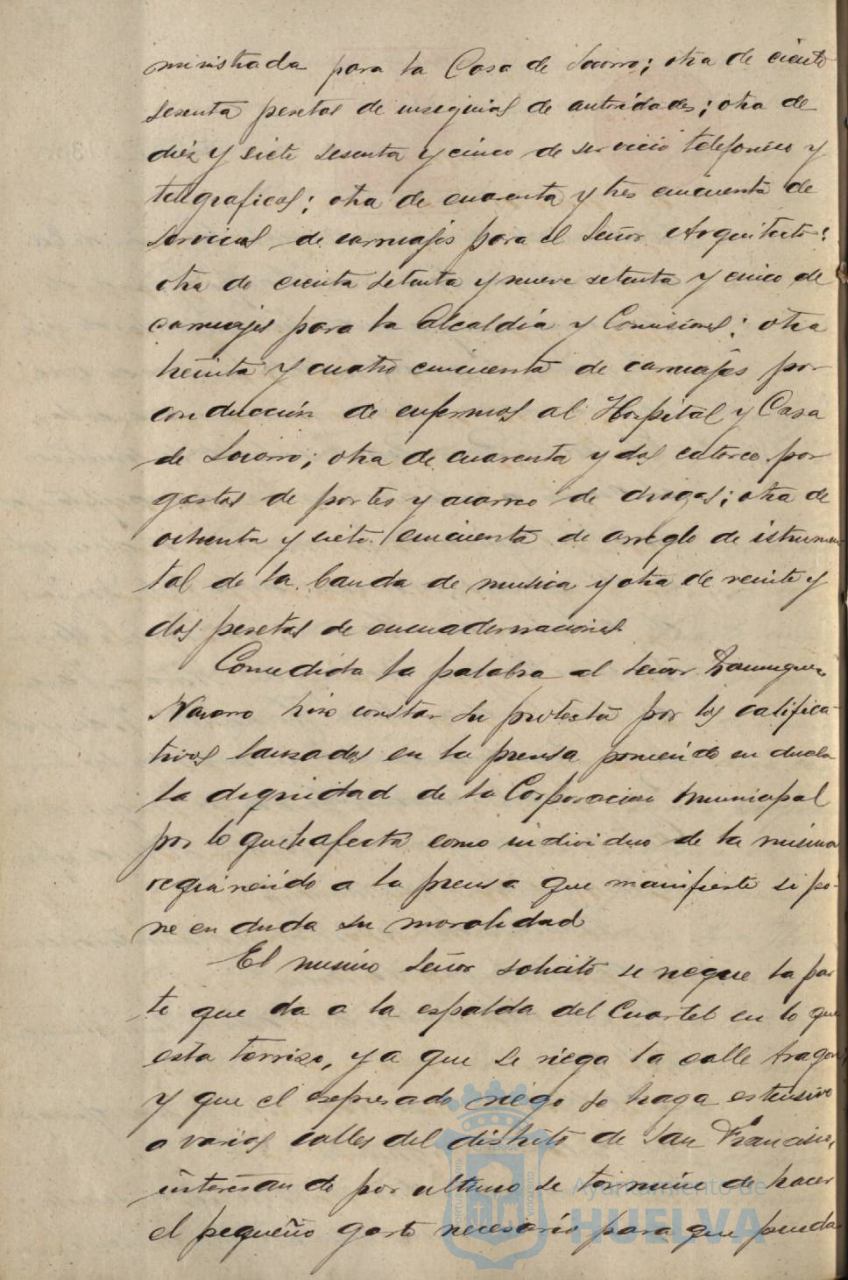 ministrada para la Casa de Socorro; otra de ciento
sesenta pesetas de insignias de autoridades; otra de
diez y siete sesenta y cinco de servicio telefonico y
telegraficos; otra de cuarenta y tres cincuenta de
servicios de carruajes para el Señor Arquitecto;
otra de ciento setenta y nueve setenta y cinco de
carruajes para la Alcaldía y Comisiones; otra
treinta y cuatro cincuenta de carruajes por
conducción de enfermos al Hospital y Casa
de Socorro; otra de cuarenta y dos catorce por
gastos de portes y acarreo de drogas; otra de
ochenta y siete cincuenta de arreglo de istrumen
tal de la banda de musica y otra de veinte y
dos pesetas de encuadernaciones
Concedida la palabra al Señor
Navarro hizo constar su protesta por los califica-
tivos lanzados en la prensa poniendo en duda
la dignidad de la Corporacion municipal
por lo que le afecta como individuo de la misma
requiriendo a la prensa que manifieste si po-
ne en duda su moralidad
El mismo Señor solicitó se riegue la par
te que da a la espalda del Cuartel en lo que
esta terrizo, ya que se riega la calle Aragon,
y que el expresado riego se haga estensivo
a varias calles del distrito de San Francisco,
interesando por ultimo se termine de hacer
el pequeño gasto necesario para que pueda
Ayuntamiento de
HUELVA